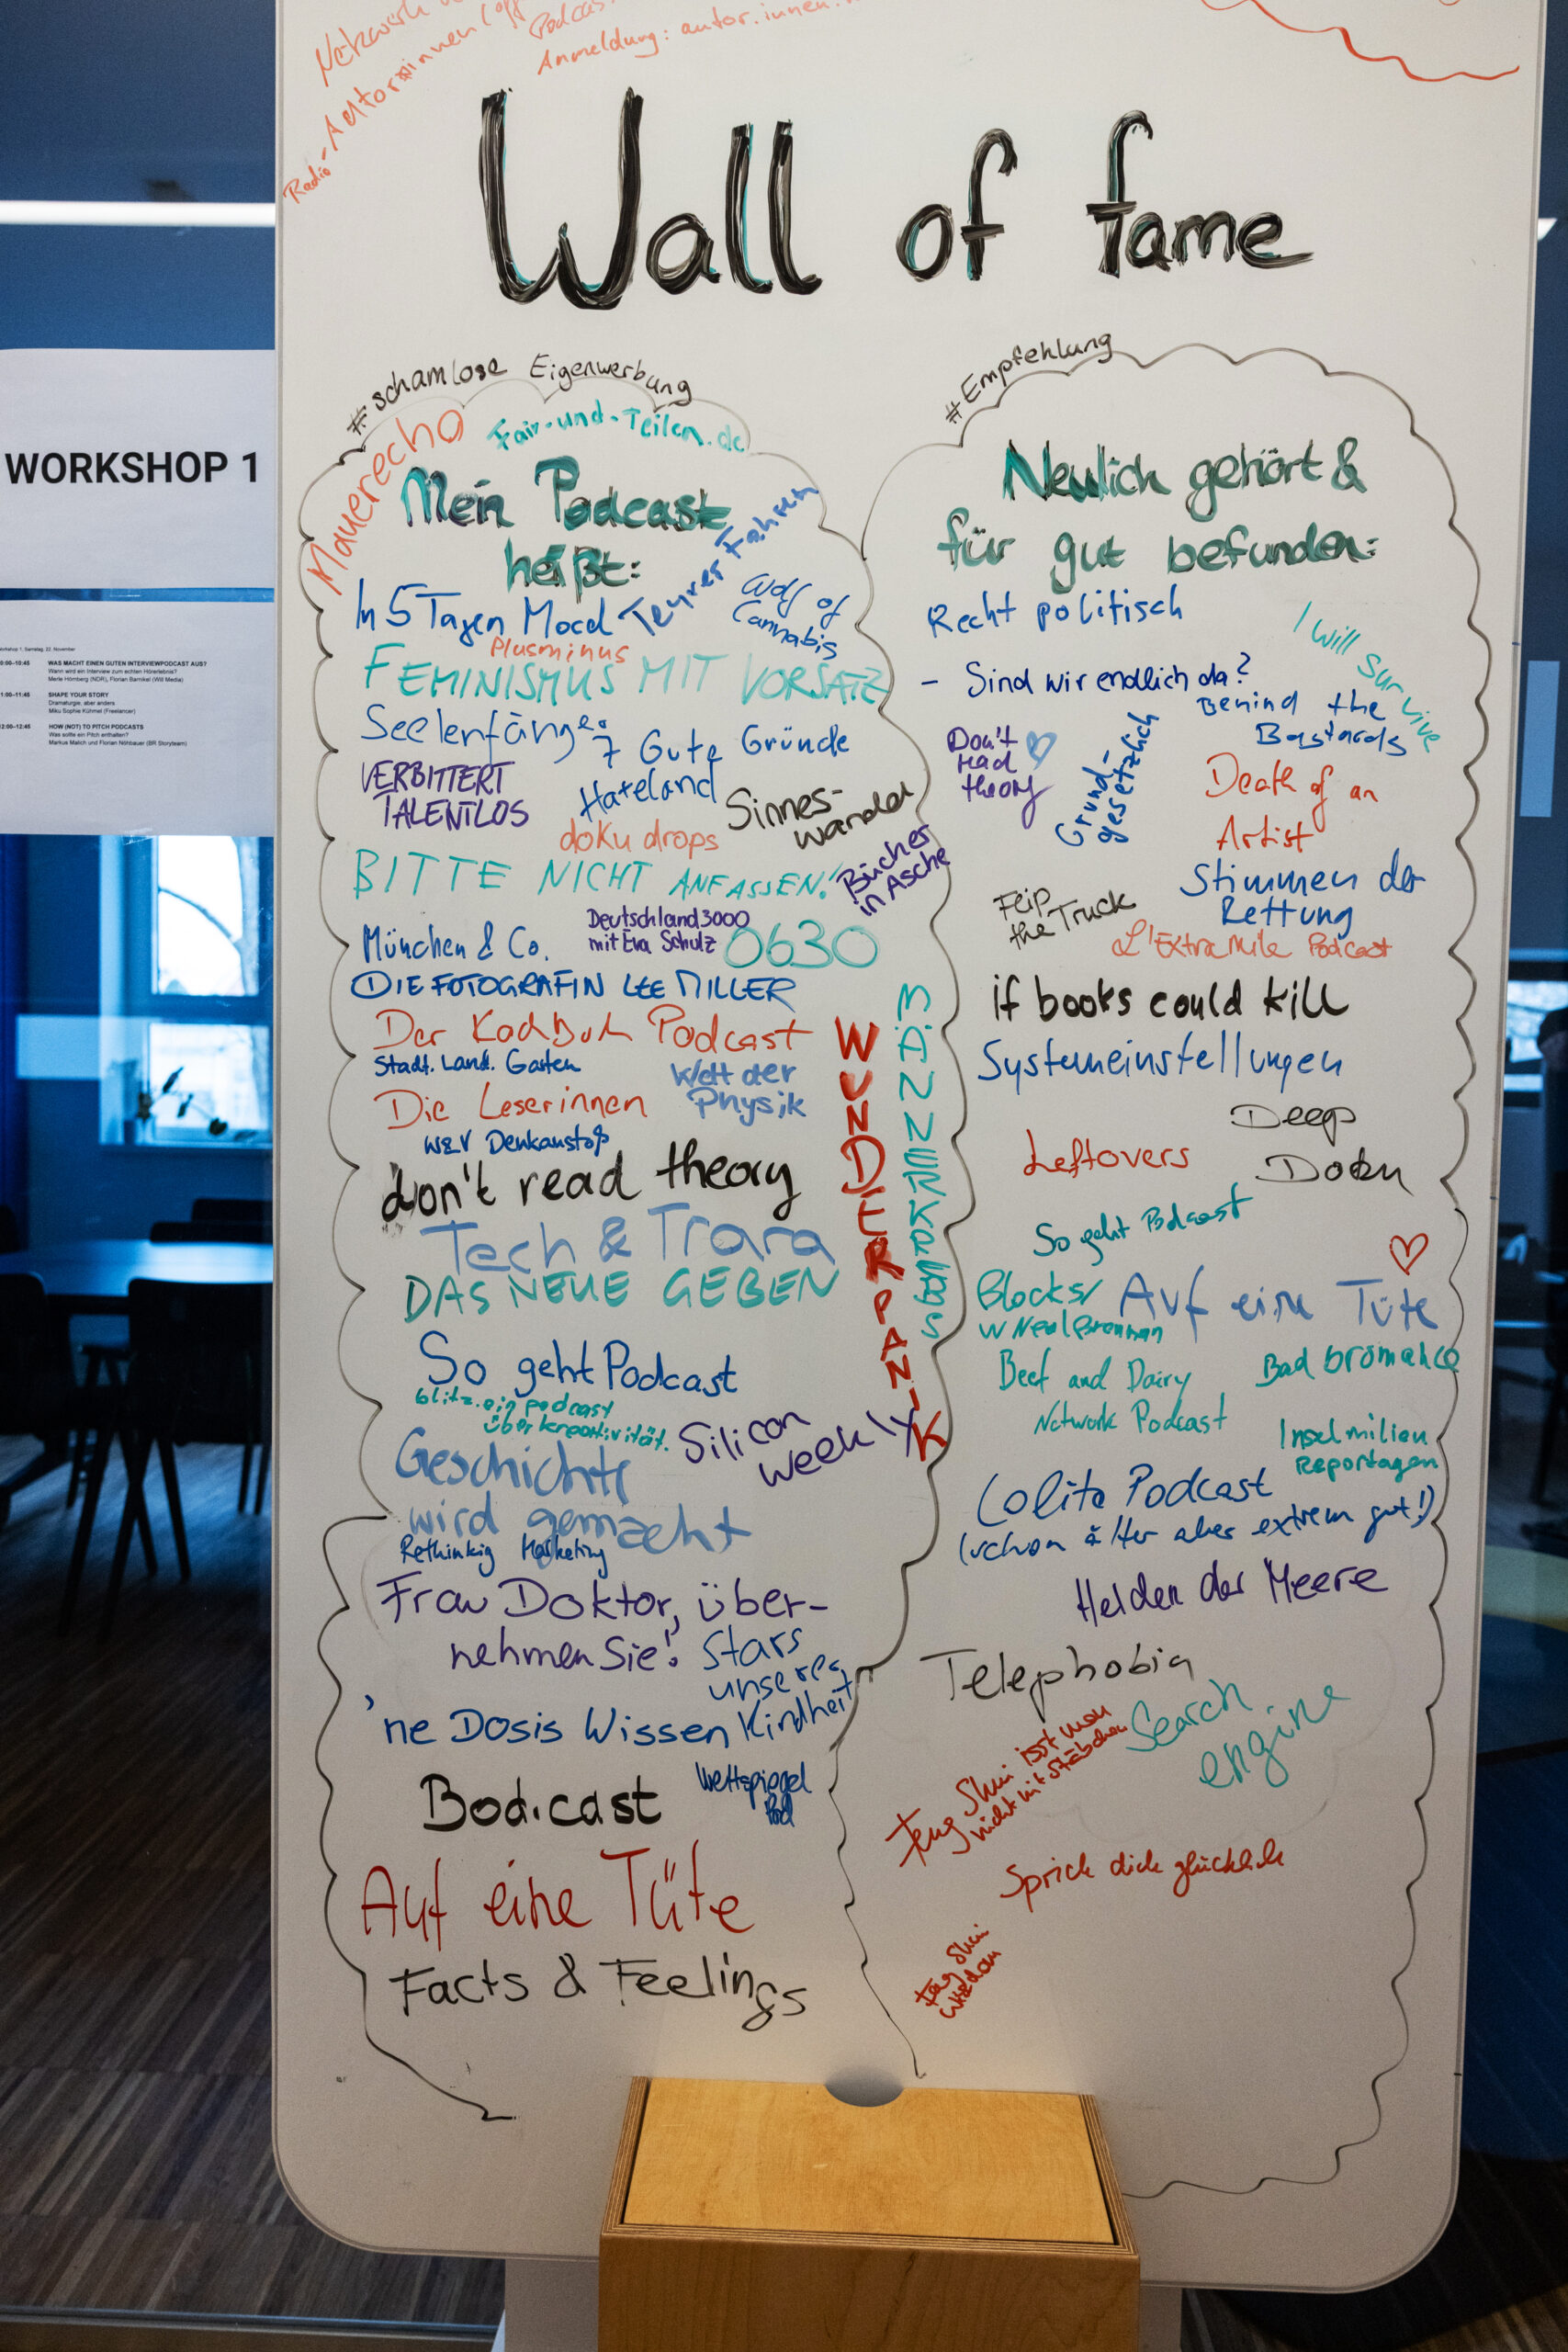 Netzwerk
Radio-Autorinnen
Podcast
Anmeldung: autor.innen.
Wall of fame
WORKSHOP 1
Workshop 1, Samstag, 22. November
WAS MACHT EINEN GUTEN INTERVIEWPODCAST AUS?
Wann wird ein Interview zum echten Hörerlebnis?
Merle Hömberg (NDR), Florian Barnikel (Will Media)
SHAPE YOUR STORY
Dramaturgie, aber anders
Miku Sophie Kühmel (Freelancer)
HOW (NOT) TO PITCH PODCASTS
Was sollte ein Pitch enthalten?
Markus Malich und Florian Nöhbauer (BR Storyteam)
#schamlose Eigenwerbung
Mauerecho
Fair-und-Teilen.de
Mein Podcast
heißt:
In 5 Tagen Mord
Teurer Fahren
Wolf of
Cannabis
Plusminus
FEMINISMUS MIT VORSATZ
Seelenfänger
7 Gute Gründe
VERBITTERT
TALENTLOS
Hateland
Sinnes-
wandel
doku drops
BITTE NICHT ANFASSEN!
Bücher
in Asche
München & Co.
Deutschland3000
mit Eva Schulz
0630
DIE FOTOGRAFIN LEE MILLER
Der Kochbuch Podcast
Stadt. Land. Garten
Welt der
Physik
Die Leserinnen
W&V Denkanstoß
don't read theory
Tech & Trara
DAS NEUE GEBEN
WUNDERPANIK
So geht Podcast
blitz. ein podcast
über kreativität.
Silicon
Weekly
Geschichte
wird gemacht
Rethinkig Marketing
Frau Doktor, über-
nehmen Sie!
Stars
unserer
Kindheit
'ne Dosis Wissen
Bod.cast
Weltspiegel
Pod
Auf eine Tüte
Facts & Feelings
#Empfehlung
Neulich gehört &
für gut befunden:
Recht politisch
I will survive
- Sind wir endlich da?
Behind the
Bastards
Don't
read
theory
Grund-
gesetzlich
Death of an
Artist
Stimmen der
Rettung
Flip
the Truck
L'Extra Mile Podcast
if books could kill
Systemeinstellungen
Leftovers
Deep
Doku
So geht Podcast
Blocks/
w Neal Brennan
Auf eine Tüte
Beef and Dairy
Network Podcast
Bad bromance
Inselmilieu
Reportagen
Lolita Podcast
(schon älter aber extrem gut!)
Helden der Meere
Telephobia
Search
engine
Feng Shui isst man
nicht mit Stäbchen
Sprich dich glücklich
Feng Shui